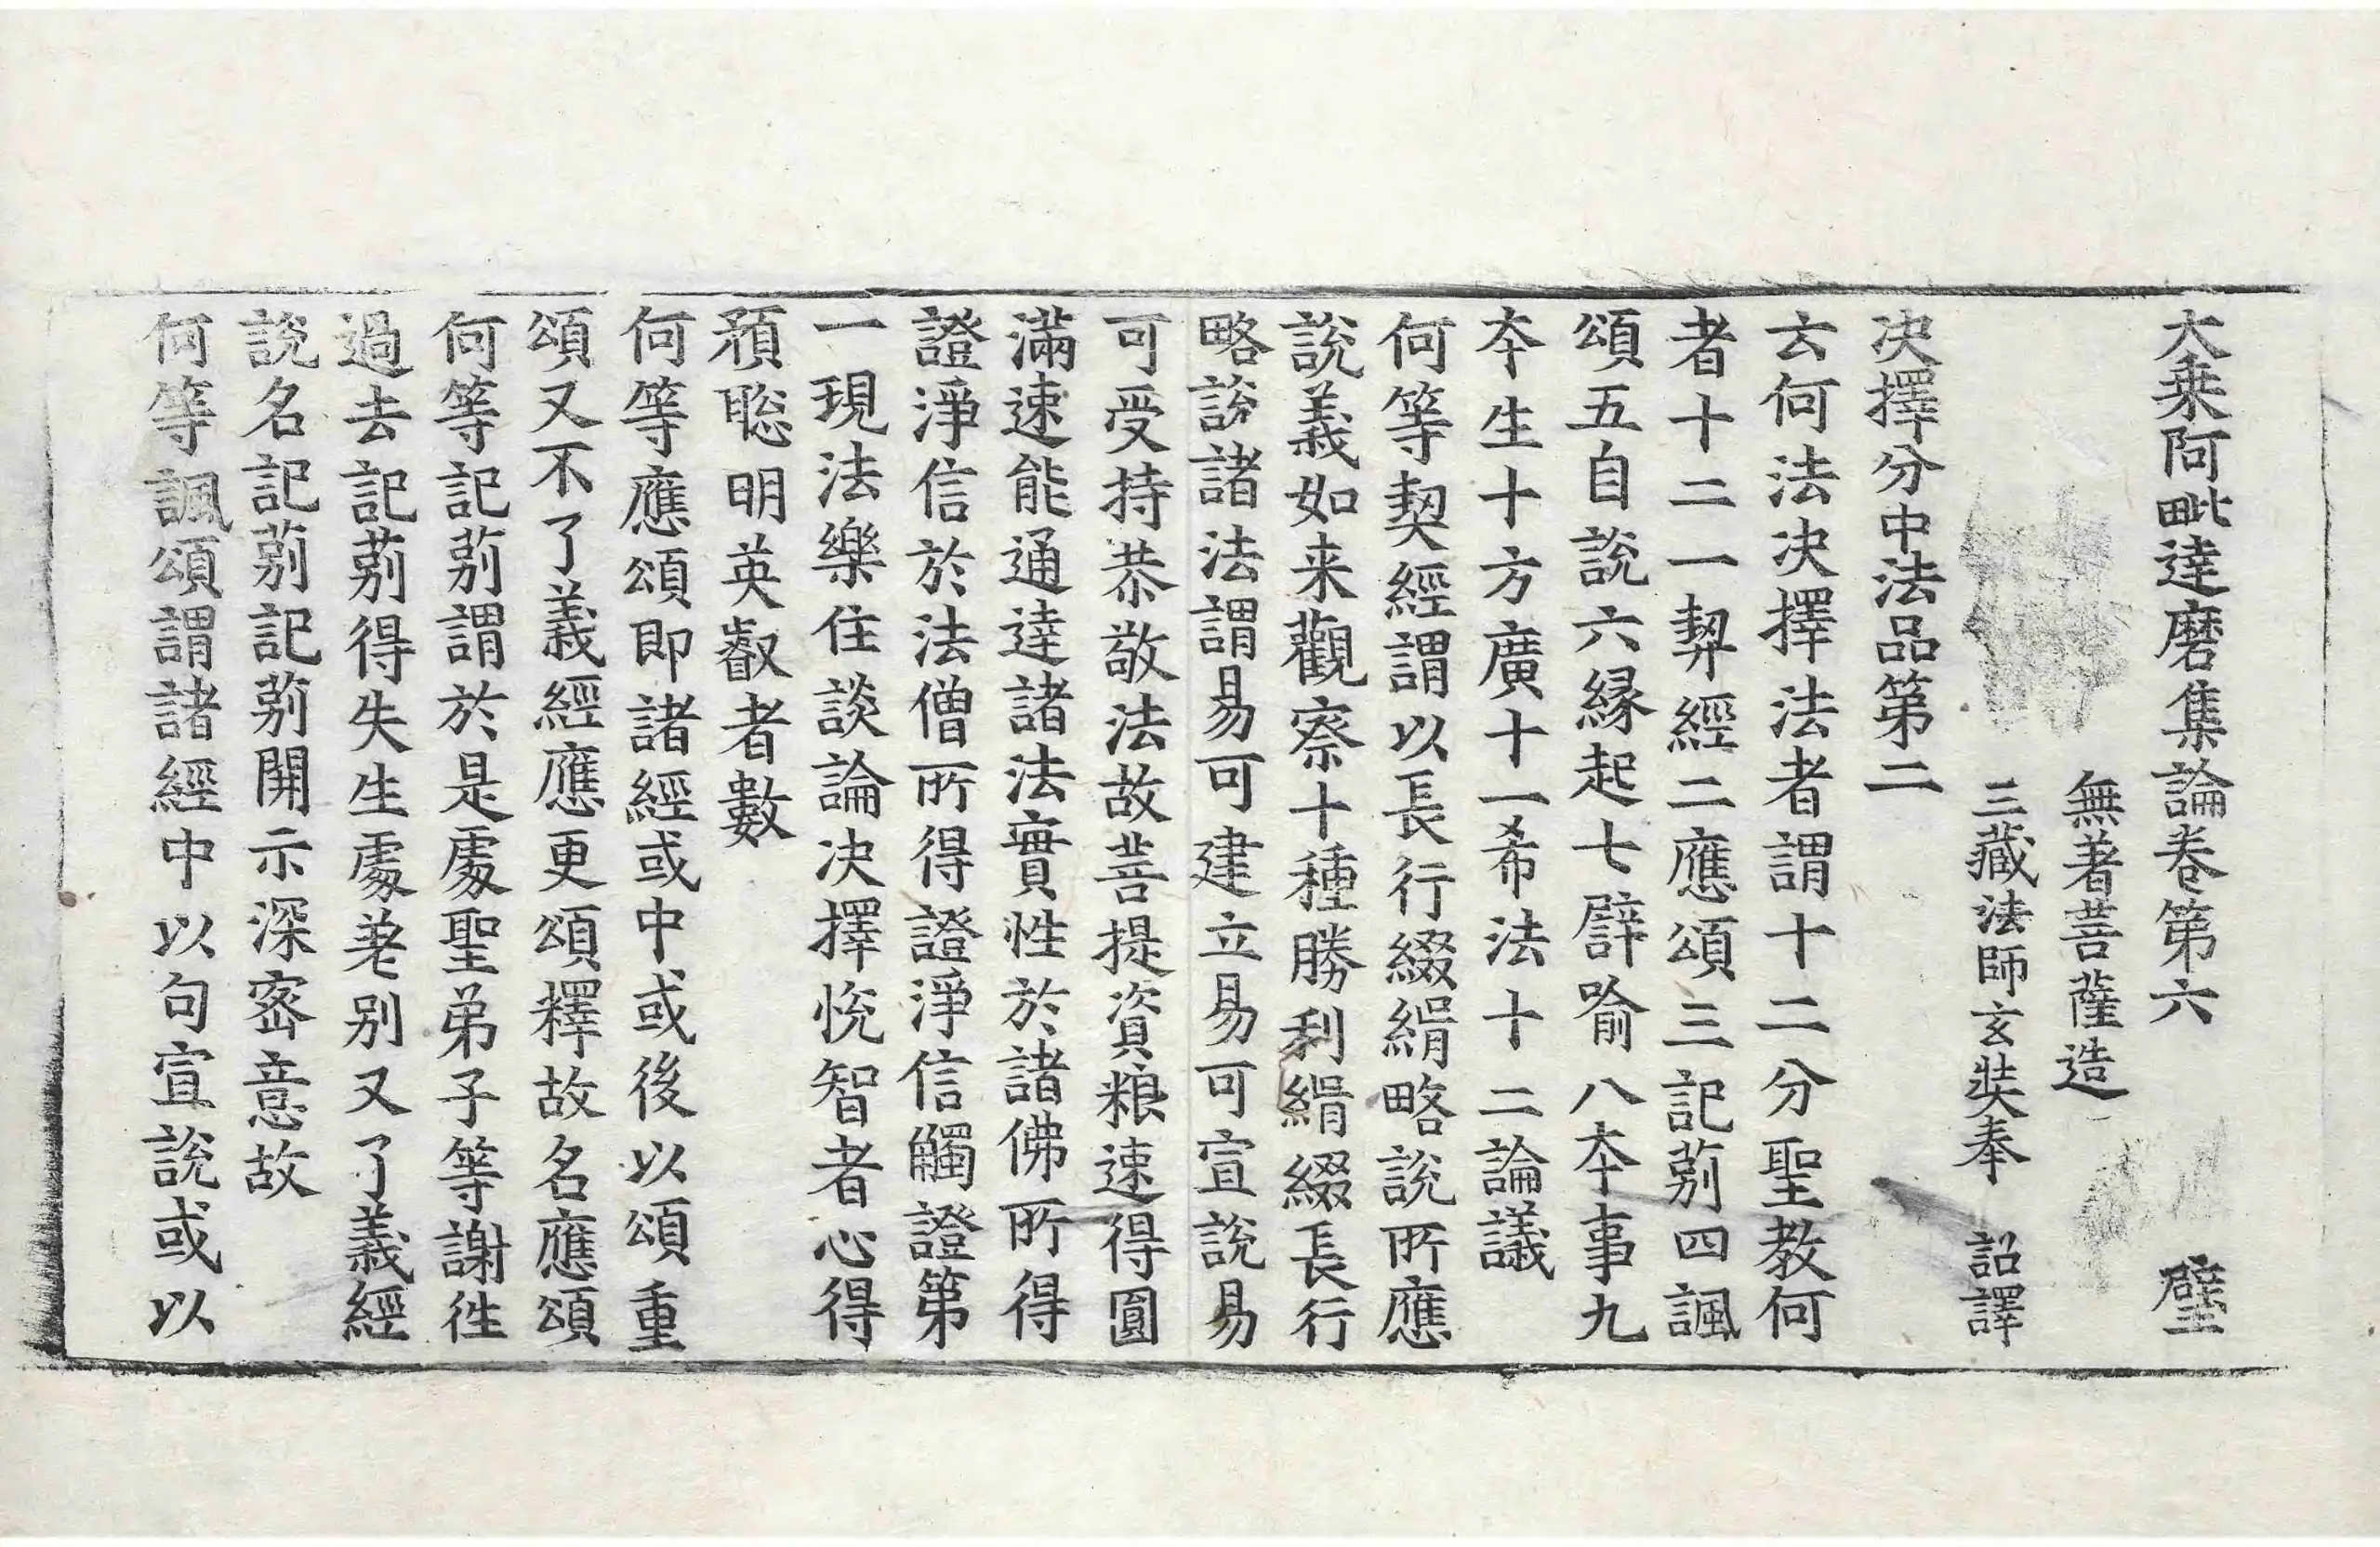 大乗阿毗達磨集論卷第六　璧
無著菩薩造
三藏法師玄奘奉　詔譯
决擇分中法品第二
云何法决擇法者謂十二分聖教何
者十二一契經二應頌三記莂四諷
頌五自說六縁起七譬喻八夲事九
夲生十方廣十一希法十二論議
何等契經謂以長行綴緝略說所應
說義如来觀察十種勝利緝綴長行
略說諸法謂易可建立易可宣說易
可受持恭敬法故菩提資粮速得圓
滿速能通達諸法實性於諸佛所得
證淨信於法僧所得證淨信觸證第
一現法樂住談論决擇悅智者心得
預聡明英叡者數
何等應頌即諸經或中或後以頌重
頌又不了義經應更頌釋故名應頌
何等記莂謂於是處聖弟子等謝徃
過去記莂得失生處差别又了義經
說名記莂記莂開示深密意故
何等諷頌謂諸經中以句宣說或以